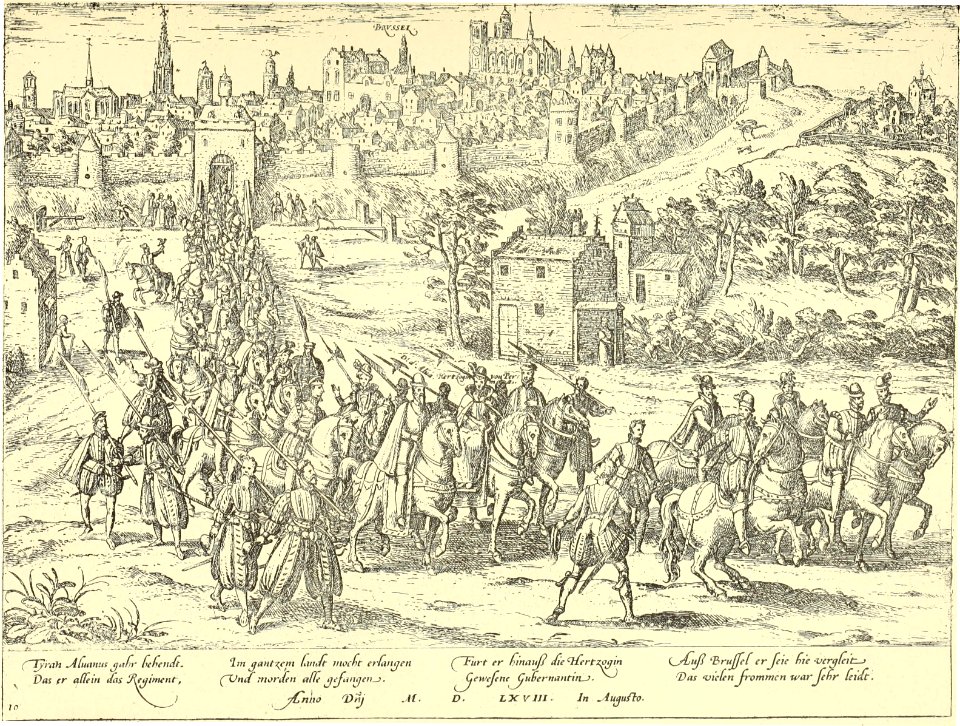 BRVSSEL
Hertzogin von Par
Tyran Aluanus gahr behendt.
Das er allein das Regiment,
Im gantzem landt mocht erlangen
Vnd morden alle gefangen.
Furt er hinauß die Hertzogin
Gewesene Gubernantin.
Auß Brussel er seie hie vergleit
Das vielen frommen war sehr leidt.
Anno Dnj M. D. LXVIII. In Augusto.
10